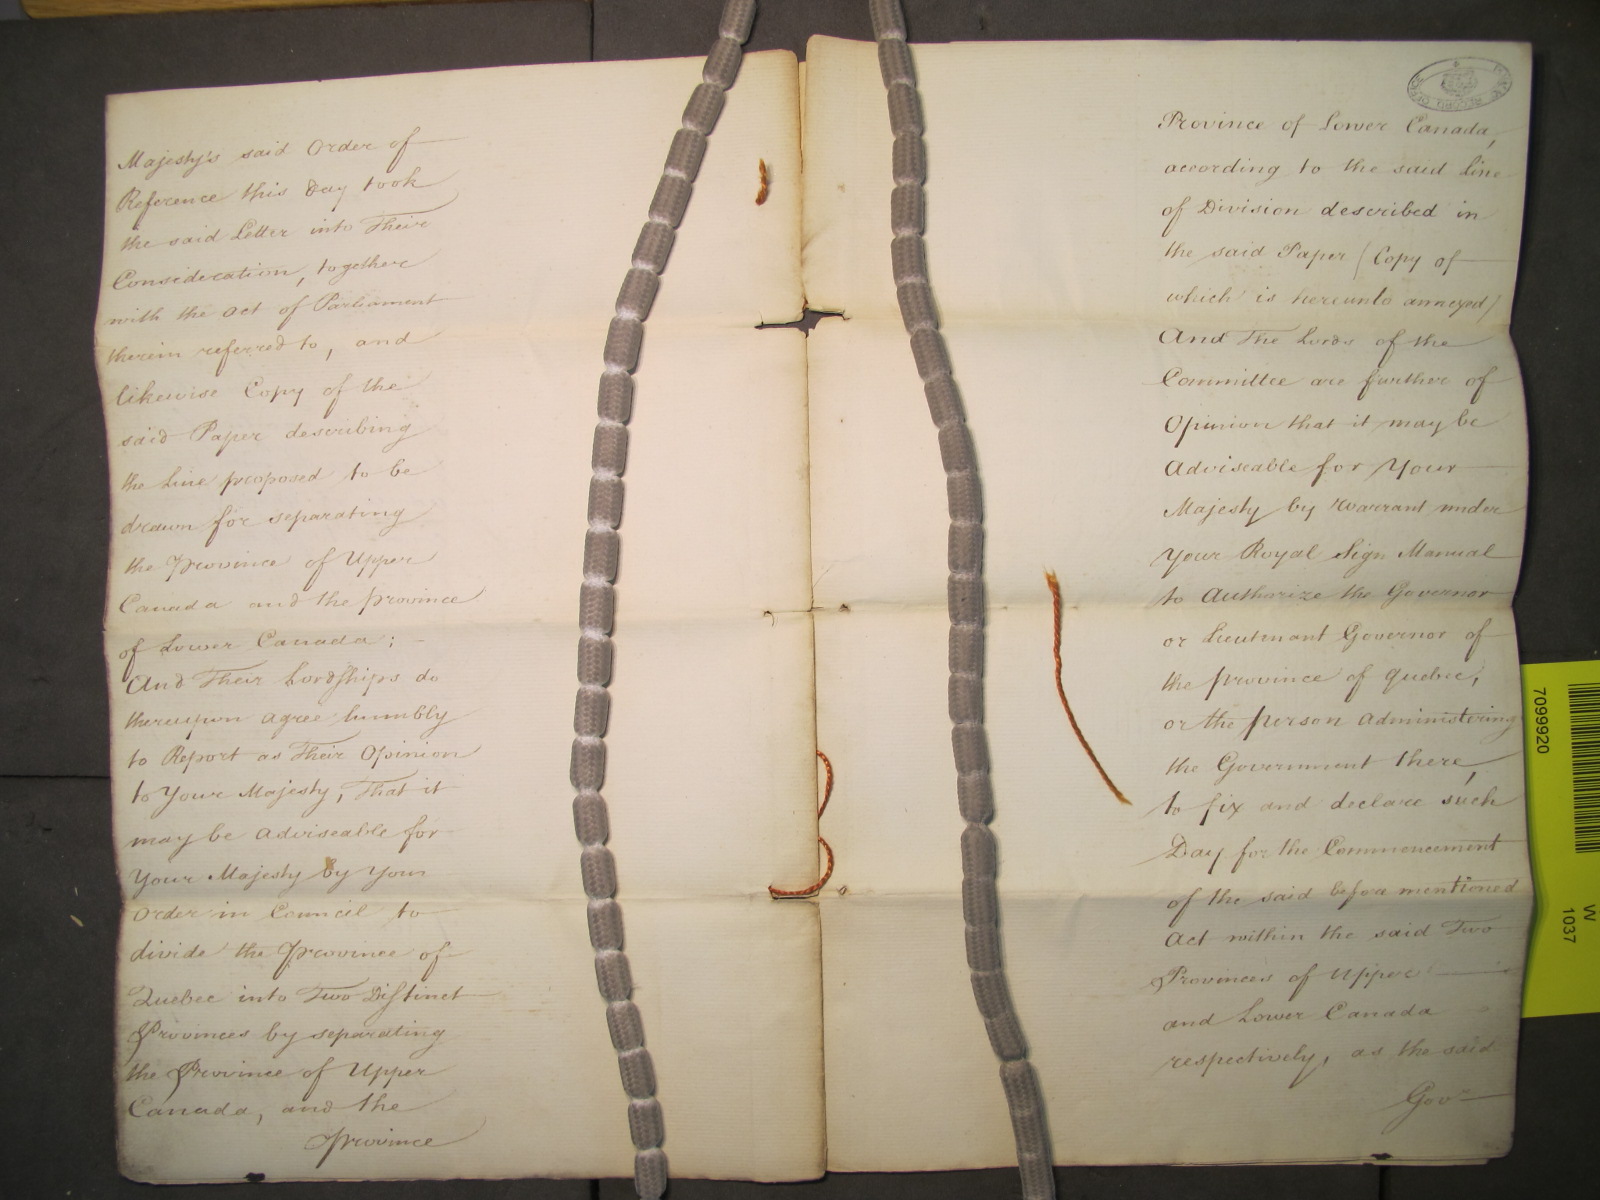 Majesty's said Order of
Reference this Day took
the said Letter into Their
Consideration, together
with the Act of Parliament
therein referred to, and
likewise Copy of the
said Paper describing
the Line proposed to be
drawn for separating
the Province of Upper
Canada and the province
of Lower Canada; -
And Their Lordships do
thereupon agree humbly
to Report as Their Opinion
to Your Majesty, That it
may be Adviseable for
Your Majesty by Your
Order in Council to
divide the Province of
Quebec into Two Distinct
Provinces by separating
the Province of Upper
Canada, and the
Province
PUBLIC RECORD OFFICE
Province of Lower Canada,
according to the said line
of Division described in
the said Paper (Copy of
which is hereunto annexed)
And The Lords of the
Committee are further of
Opinion that it may be
Adviseable for Your
Majesty by Warrant under
Your Royal Sign Manual
to Authorize the Governor
or Lieutenant Governor of
the province of Quebec,
or the person administering
the Government there,
to fix and declare such
Day for the Commencement
of the said before mentioned
Act within the said Two
Provinces of Upper
and Lower Canada
respectively, as the said
Govr
7099920
W
1037